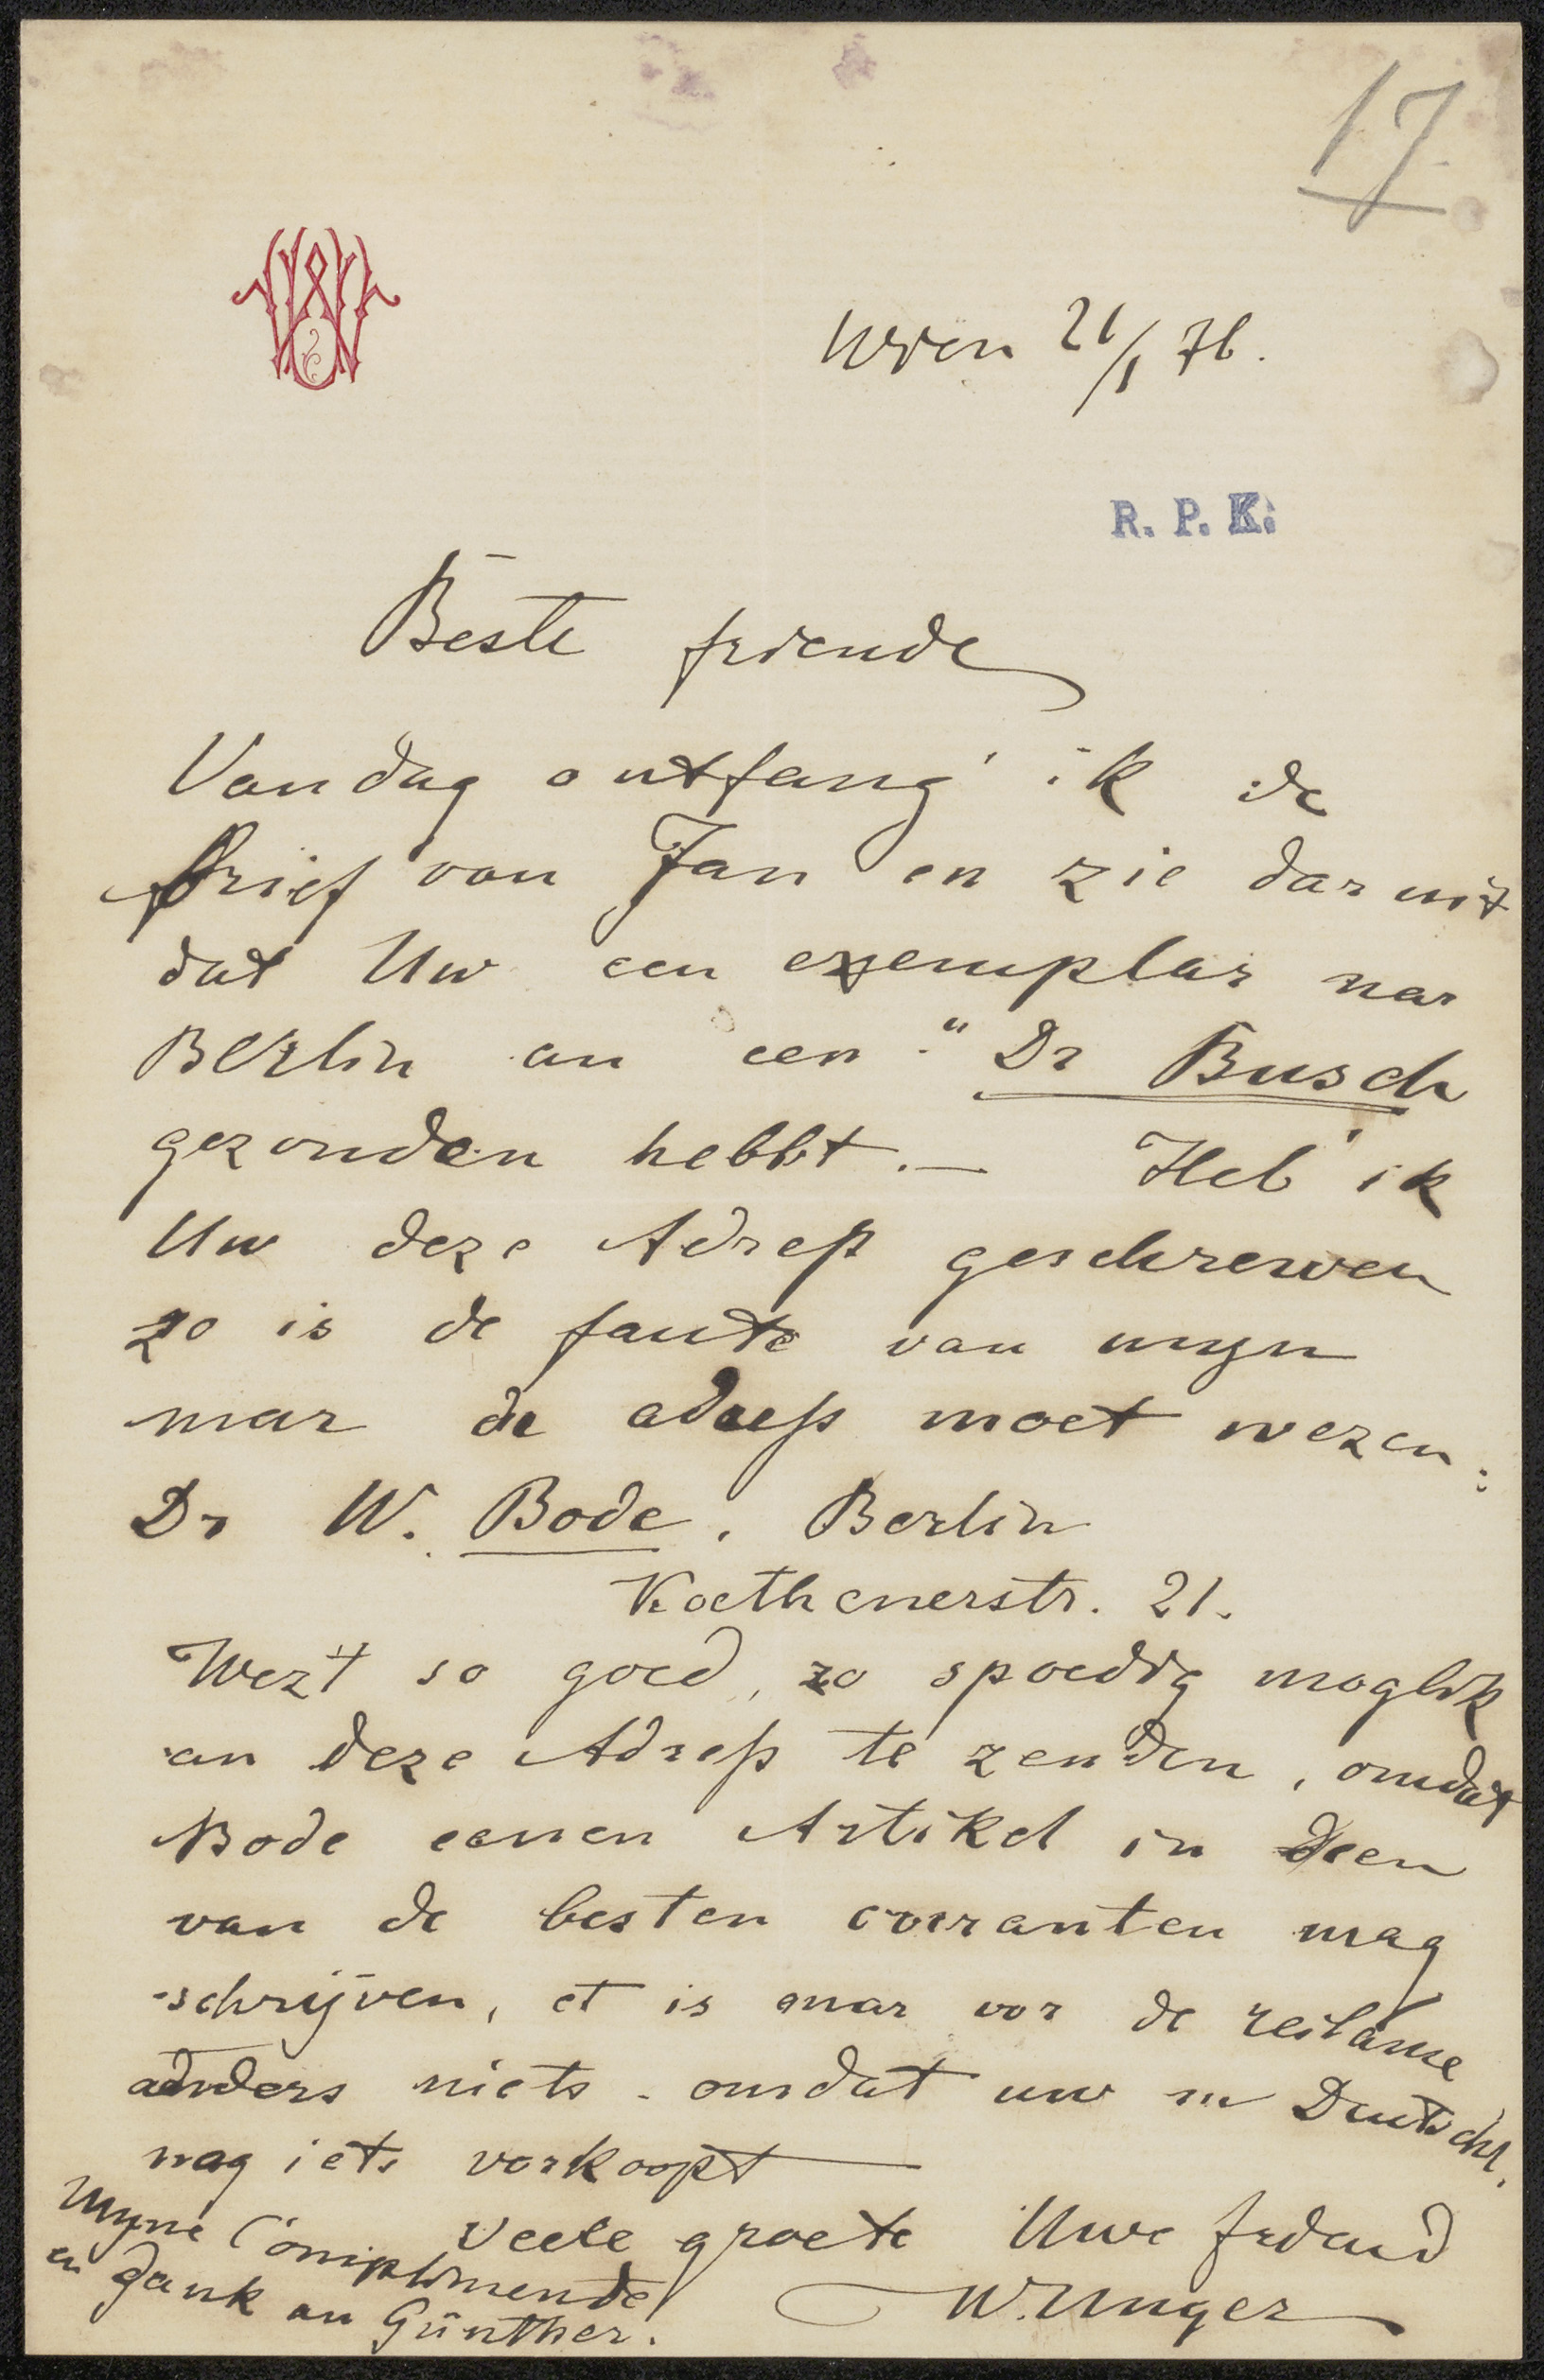 17
Wien 21/1 76.
R. P. K.
Beste friende
Vandag ontfang ik de
brief van Jan en zie daruit
dat Uw een exemplar nar
Berlin an een "Dr Busch
gezonden hebbt. — Heb ik
Uw deze Adress geschrewen
zo is de faute van myn
mar de adress moet wezen:
Dr W. Bode. Berlin
Koethenerstr. 21.
Wezt so goed, zo spoedig moglik
an deze Adress te zenden, omdat
Bode eenen Artikel in een
van de besten couranten mag
schrijven, et is mar vor de reclame
anders niets - omdat uw in Deutschl.
nog iets verkoopt —
Veele groete Uwe friend
W. Unger
Myne Complimende
en dank an Günther.